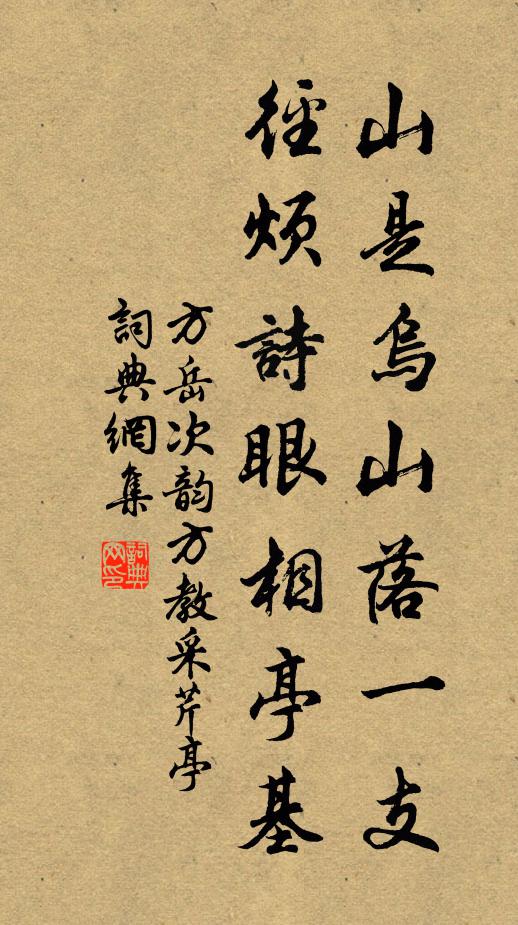 山是烏山落一支
徑煩詩眼相亭基
方岳次韵方教采芹亭
詞典網集
詞典网印